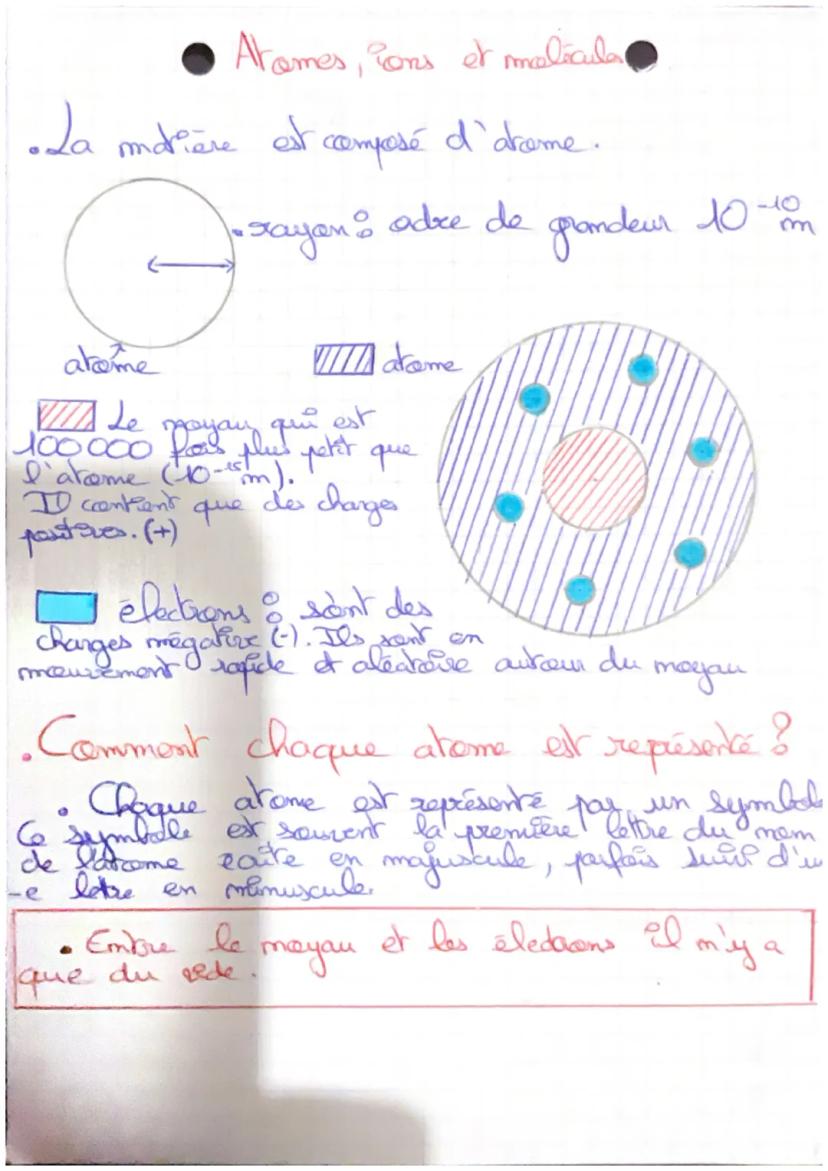 Atomes, ions et molécules
. La matière est composé d'atome.
. rayon : ordre de grandeur 10⁻¹⁰ m
atome
atome
Le noyau qui est
100 000 fois plus petit que
l'atome (10⁻¹⁵ m).
Il contient que des charges
positives. (+)
électrons : sont des
charges négative (-). Ils sont en
mouvement rapide et aléatoire autour du noyau
. Comment chaque atome est représenté ?
. Chaque atome est représenté par un symbole
Ce symbole est souvent la première lettre du nom
de l'atome écrite en majuscule, parfois suivi d'u
-e lettre en minuscule.
. Entre le noyau et les électrons il n'y a
que du vide.